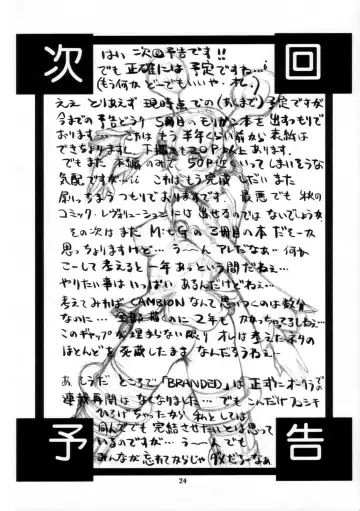 次回
はい 次回予告です!!
でも 正確には 予定ですね…
(もう何か どーでもいいや・れ。)
ええ とりあえず 現時点での(あくまで)予定ですが
今までの予告どうり 5冊目のもりがン本を出すつもりで
おります… これは もう半年くらい前から 表紙は
できちょりますし、下描きも20P以上あります。
でもまた 本編のみで 50P近くいってしまいそうな
気配ですが…iii これはもう完成しだいまた
原いっちまうつもりでおりますです。 最悪でも 秋の
コミック・レヴォリューションには 出せるのでは ないでしょうか
その次はまた M:tGの 3冊目の本 だそーかな
思っちょりますけど… うーん アレだなぁ… 何か
こーして考えると 一年あっという間だねェ…
やりたい事は いっぱい あるんだけどねェ…
考えてみれば CAMBION なんて 思いつくのは数分
なのに… 全部描くのに 2年も かかっちゃってるしねェ…
このギャップが 埋まらない限り オレは考えたネタの
ほとんどを 死蔵したまま なんだろうねぇ…
あ、そうだ ところで「BRANDED」は 正式に オークラで
連載再開は なくなりました… でも こんだけ
ひろげちゃったから 私としては
何んとでも 完結させたいとは思って
いるのですが… うーん でも
みんなが 忘れてからじゃ ダメだろーなぁ
予告
24